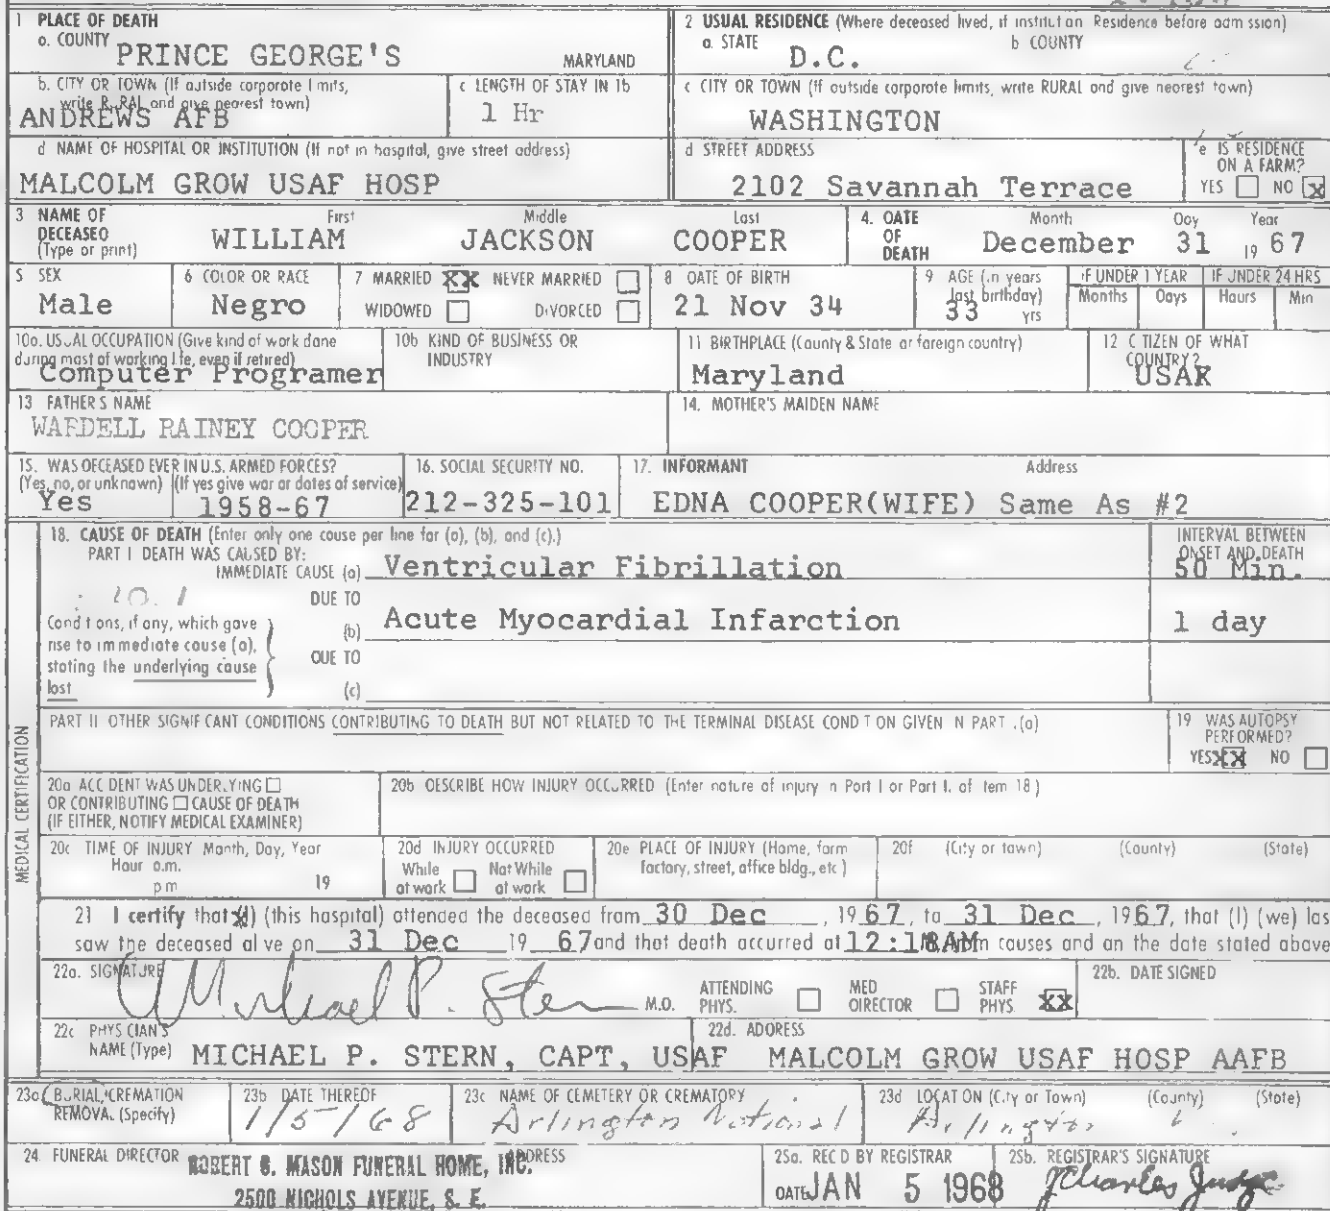 1 PLACE OF DEATH
a. COUNTY PRINCE GEORGE'S MARYLAND
2 USUAL RESIDENCE (Where deceased lived, if institut on Residence before adm ssion)
a. STATE D.C. b COUNTY
b. CITY OR TOWN (If outside corporate l mits, write RURAL and give nearest town)
ANDREWS AFB
c LENGTH OF STAY IN 1b
1 Hr
c CITY OR TOWN (If outside corporate limits, write RURAL and give nearest town)
WASHINGTON
d NAME OF HOSPITAL OR INSTITUTION (If not in hospital, give street address)
MALCOLM GROW USAF HOSP
d STREET ADDRESS
2102 Savannah Terrace
e IS RESIDENCE ON A FARM?
YES NO X
3 NAME OF DECEASED (Type or print)
First Middle Last
WILLIAM JACKSON COOPER
4. DATE OF DEATH
Month Day Year
December 31 19 67
5 SEX
Male
6 COLOR OR RACE
Negro
7 MARRIED XX NEVER MARRIED
WIDOWED DIVORCED
8 DATE OF BIRTH
21 Nov 34
9 AGE (in years last birthday)
33 yrs
IF UNDER 1 YEAR
Months Days
IF UNDER 24 HRS
Hours Min
10a. USUAL OCCUPATION (Give kind of work done during most of working life, even if retired)
Computer Programer
10b KIND OF BUSINESS OR INDUSTRY
11 BIRTHPLACE (County & State or foreign country)
Maryland
12 C TIZEN OF WHAT COUNTRY?
USA
13 FATHER S NAME
WARDELL RAINEY COOPER
14. MOTHER'S MAIDEN NAME
15. WAS DECEASED EVER IN U.S. ARMED FORCES?
(Yes, no, or unknown) (If yes give war or dates of service)
Yes 1958-67
16. SOCIAL SECURITY NO.
212-325-101
17. INFORMANT Address
EDNA COOPER(WIFE) Same As #2
MEDICAL CERTIFICATION
18. CAUSE OF DEATH (Enter only one cause per line for (a), (b), and (c).)
PART I DEATH WAS CAUSED BY:
IMMEDIATE CAUSE (a) Ventricular Fibrillation
INTERVAL BETWEEN ONSET AND DEATH
50 Min.
DUE TO
(b) Acute Myocardial Infarction 1 day
Cond t ons, if any, which gave rise to immediate cause (a), stating the underlying cause last
DUE TO
(c)
PART II OTHER SIGNIF CANT CONDITIONS CONTRIBUTING TO DEATH BUT NOT RELATED TO THE TERMINAL DISEASE COND T ON GIVEN N PART .(a)
19 WAS AUTOPSY PERFORMED?
YES XX NO
20a ACC DENT WAS UNDERLYING
OR CONTRIBUTING CAUSE OF DEATH
(IF EITHER, NOTIFY MEDICAL EXAMINER)
20b DESCRIBE HOW INJURY OCCURRED (Enter nature of injury n Part I or Part I. of tem 18)
20c TIME OF INJURY Month, Day, Year
Hour a.m.
p m 19
20d INJURY OCCURRED
While at work Not While at work
20e PLACE OF INJURY (Home, farm factory, street, office bldg., etc)
20f (City or town) (County) (State)
21 I certify that (I) (this hospital) attended the deceased from 30 Dec, 1967, to 31 Dec, 1967, that (I) (we) las
saw the deceased al ve on 31 Dec 19 67 and that death occurred at 12:18AM from causes and on the date stated above
22a. SIGNATURE
Michael P. Stern M.D.
ATTENDING PHYS. MED DIRECTOR STAFF PHYS XX
22b. DATE SIGNED
22c PHYS CIAN'S NAME (Type)
MICHAEL P. STERN, CAPT, USAF
22d. ADDRESS
MALCOLM GROW USAF HOSP AAFB
23a BURIAL, CREMATION REMOVAL (Specify)
23b DATE THEREOF
1/5/68
23c NAME OF CEMETERY OR CREMATORY
Arlington National
23d LOCAT ON (City or Town) (County) (State)
Arlington
24 FUNERAL DIRECTOR ADDRESS
ROBERT G. MASON FUNERAL HOME, INC.
2500 NICHOLS AVENUE, S. E.
25a. REC D BY REGISTRAR
DATE JAN 5 1968
25b. REGISTRAR'S SIGNATURE
J Charles Judge